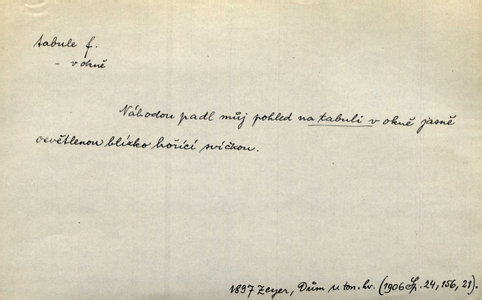 tabule f.
- v okně
Náhodou padl můj pohled na tabuli v okně jasně
osvětlenou blízko hořící svíčkou.
1897 Zeyer, Dům u ton. hv. (1906 Sp. 24, 156, 21).